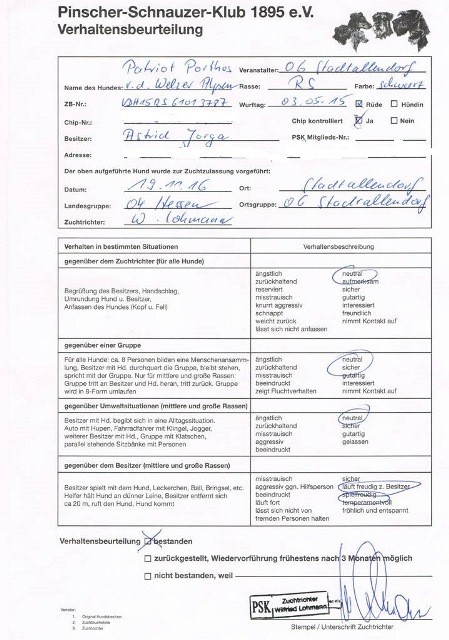 Pinscher-Schnauzer-Klub 1895 e.V.
Verhaltensbeurteilung
Patriot Porthos Veranstalter: OG Stadtallendorf
Name des Hundes: v.d. Welzer Alpen Rasse: RS Farbe: schwarz
ZB-Nr.: Wurftag: 03.05.15 Rüde Hündin
Chip-Nr.: Chip kontrolliert Ja Nein
Besitzer: Astrid Jorga PSK Mitglieds-Nr.:
Adresse:
Der oben aufgeführte Hund wurde zur Zuchtzulassung vorgeführt:
Datum: 19.11.16 Ort: Stadtallendorf
Landesgruppe: 04 Hessen Ortsgruppe: OG Stadtallendorf
Zuchtrichter: W. Lohmann
Verhalten in bestimmten Situationen Verhaltensbeschreibung
gegenüber dem Zuchtrichter (für alle Hunde)
Begrüßung des Besitzers, Handschlag,
Umrundung Hund u. Besitzer,
Anfassen des Hundes (Kopf u. Fell)
ängstlich neutral
zurückhaltend aufmerksam
reserviert sicher
misstrauisch gutartig
knurrt aggressiv interessiert
schnappt freundlich
weicht zurück nimmt Kontakt auf
lässt sich nicht anfassen
gegenüber einer Gruppe
Für alle Hunde: ca. 8 Personen bilden eine Menschenansamm-
lung, Besitzer mit Hd. durchquert die Gruppe, bleibt stehen,
spricht mit der Gruppe. Nur für mittlere und große Rassen:
Gruppe tritt an Besitzer und Hd. heran, tritt zurück. Gruppe wird
in 8-Form umlaufen
ängstlich neutral
zurückhaltend sicher
misstrauisch gutartig
beeindruckt gelassen
zeigt Fluchtverhalten nimmt Kontakt auf
gegenüber Umweltsituationen (mittlere und große Rassen)
Besitzer mit Hd. begibt sich in eine Alltagssituation.
Auto mit Hupen, Fahrradfahrer mit Klingel, Jogger,
weiterer Besitzer mit Hd., Gruppe mit Klatschen,
parallel stehende Sitzbänke mit Personen
ängstlich neutral
zurückhaltend sicher
misstrauisch gutartig
aggressiv gelassen
beeindruckt
gegenüber dem Besitzer (mittlere und große Rassen)
Besitzer spielt mit dem Hund, Leckerchen, Ball, Bringsel, etc.
Helfer hält Hund an dünner Leine, Besitzer entfernt sich
ca 20 m, ruft den Hund, Hund kommt
misstrauisch sicher
aggressiv ggn. Hilfsperson läuft freudig z. Besitzer
beeindruckt spielfreudig
läuft fort temperamentvoll
lässt sich nicht von fröhlich und entspannt
fremden Personen halten
Verhaltensbeurteilung bestanden
zurückgestellt, Wiedervorführung frühestens nach 3 Monaten möglich
nicht bestanden, weil
PSK Zuchtrichter
Wilfried Lohmann
Stempel / Unterschrift Zuchtrichter
Verteiler:
1. Original Hundebesitzer
2. Zuchtbuchstelle
3. Zuchtrichter